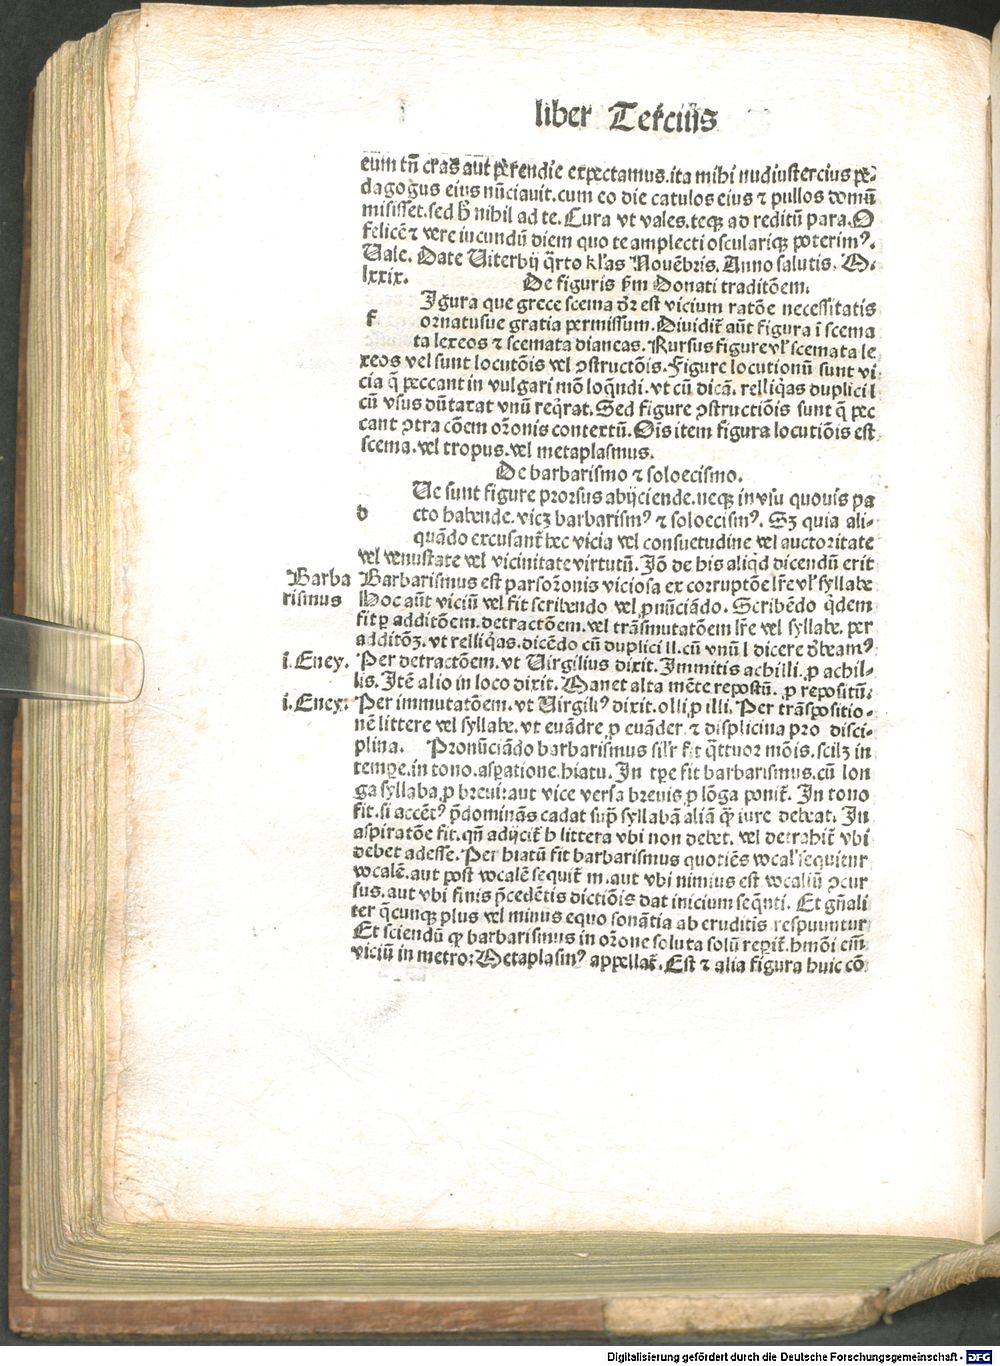 liber Tercius
eum tñ cras aut perendie expectamus. ita mihi nudiustercius pe-
dagogus eius nūciauit. cum eo die catulos eius ⁊ pullos domū
misisset. sed h̄ nihil ad te. Cura vt vales. teqꝫ ad reditū para. O
felicē ⁊ vere iucundū diem quo te amplecti osculariqꝫ poterimꝰ.
Vale. Date Viterbij q̄rto kl'as Nouēbris. Anno salutis. M.
lxxix.
De figuris ẜm Donati traditōem.
f
Igura que grece scema dr̄ est vicium ratōe necessitatis
ornatusue gratia permissum. Diuidit̄ aūt figura ī scema
ta lexeos ⁊ scemata dianeas. Rursus figure vl' scemata le
xeos vel sunt locutōis vel ꝯstructōis. Figure locutionū sunt vi
cia q̄ peccant in vulgari mō loqn̄di. vt cū dicā. relliq̄as duplici l
cū vsus dūtaxat vnū req̄rat. Sed figure ꝯstructiōis sunt q̄ pec
cant ꝯtra cōem or̄onis contextū. Oīs item figura locutiōis est
scema. vel tropus. vel metaplasmus.
De barbarismo ⁊ soloecismo.
d
Ue sunt figure prorsus abijciende. neqꝫ in vsu quouis pa
cto habende. vicꝫ barbarismꝰ ⁊ soloecismꝰ. Sꝫ quia ali-
quādo excusant̄ hec vicia vel consuetudine vel auctoritate
vel venustate vel vicinitate virtutū. Jō de his aliqd dicendū erit
Barba
rismus
Barbarismus est pars or̄onis viciosa ex corruptōe lr̄e vl' syllabe
Hoc aūt viciū vel fit scribendo vel ꝓnūciādo. Scribēdo q̄dem
fit ꝑ additōem. detractōem. vel trāsmutatōem lr̄e vel syllabe. per
additōꝫ. vt relliq̄as. dicēdo cū duplici ll. cū vnū l dicere dēbeamꝰ
i. Eney.
Per detractōem. vt Virgilius dixit. Immitis achilli. ꝓ achil-
lis. Itē alio in loco dixit. Manet alta mēte repostū. ꝓ repositū.
i. Eney:
Per immutatōem. vt Virgiliꝰ dixit. olli ꝓ illi. Per trāspositio-
nē littere vel syllabe. vt euādre ꝓ euāder. ⁊ displicina pro disci-
plina. Pronūciādo barbarismus sil'r fit q̄ttuor mōis. scilꝫ in
tempe. in tono. aspiratione. hiatu. In tꝑe fit barbarismus. cū lon
ga syllaba ꝓ breui: aut vice versa breuis ꝓ lōga ponit̄. In tono
fit. si accētꝰ p̄dominās cadat supꝭ syllabā aliā qꝫ iure debeat. In
aspiratōe fit. qn̄ adijcit̄ h littera vbi non debet. vel detrahit̄ vbi
debet adesse. Per hiatū fit barbarismus quotiēs vocal' sequitur
vocalē. aut post vocalē sequit̄ m. aut vbi nimius est vocaliū ꝯcur
sus. aut vbi finis p̄cedētis dictiōis dat inicium seq̄nti. Et gn̄ali
ter q̄cunqꝫ plus vel minus equo sonātia ab eruditis respuuntur
Et sciendū ꝙ barbarismus in or̄one soluta solū reꝑit̄. hmōi em̄
viciū in metro: Metaplasmꝰ appellat̄. Est ⁊ alia figura huic cō
Digitalisierung gefördert durch die Deutsche Forschungsgemeinschaft - DFG